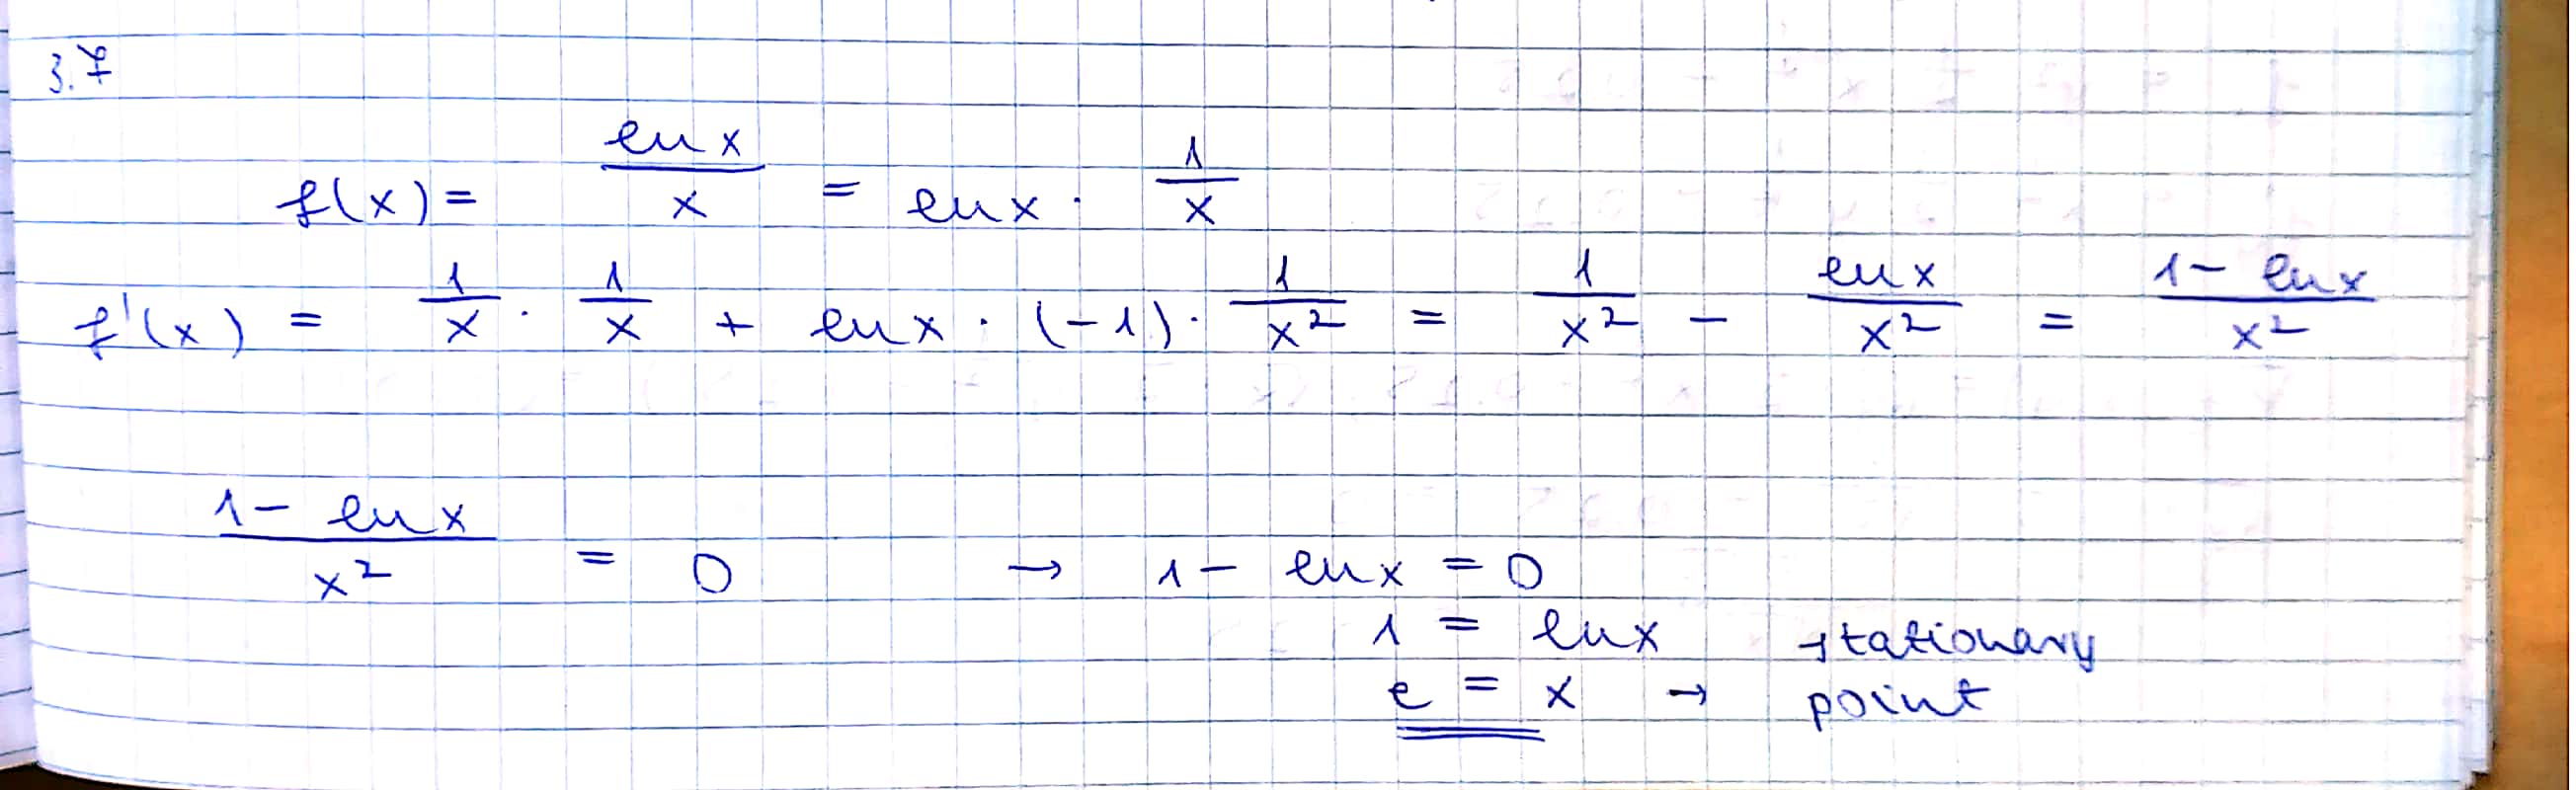 3.7
f(x) = ln x / x = ln x · 1/x
f'(x) = 1/x · 1/x + ln x · (-1) · 1/x² = 1/x² - ln x / x² = (1 - ln x) / x²
(1 - ln x) / x² = 0 → 1 - ln x = 0
1 = ln x stationary
e = x → point